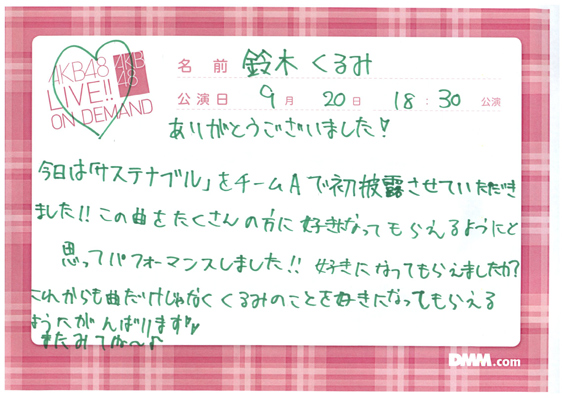 AKB48
LIVE!!
ON DEMAND
AKB
48
名 前 鈴木 くるみ
公演日 9月 20日 18:30 公演
ありがとうございました!
今日は「サステナブル」をチームAで初披露させていただき
ました!!この曲をたくさんの方に好きになってもらえるようにと
思ってパフォーマンスしました!!好きになってもらえましたか?
これからも曲だけじゃなくくるみのことを好きになってもらえる
ようにがんばります
またみてね〜♪
DMM.com